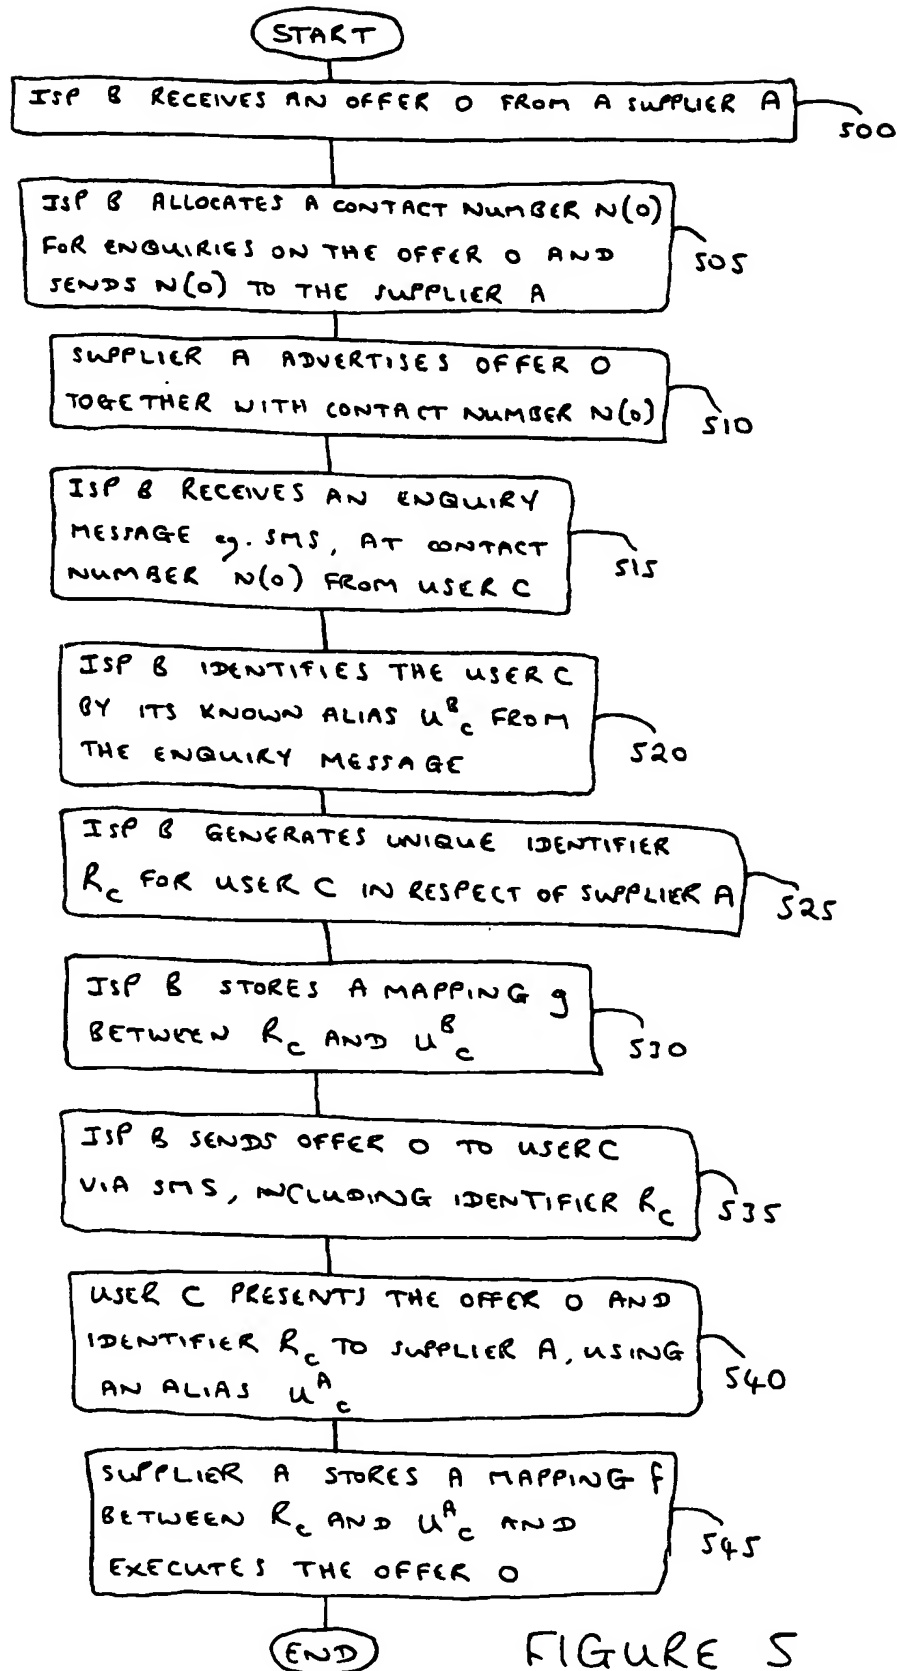 START
ISP B RECEIVES AN OFFER O FROM A SUPPLIER A
500
ISP B ALLOCATES A CONTACT NUMBER N(O)
FOR ENQUIRIES ON THE OFFER O AND
SENDS N(O) TO THE SUPPLIER A
505
SUPPLIER A ADVERTISES OFFER O
TOGETHER WITH CONTACT NUMBER N(O)
510
ISP B RECEIVES AN ENQUIRY
MESSAGE eg. SMS, AT CONTACT
NUMBER N(O) FROM USER C
515
ISP B IDENTIFIES THE USER C
BY ITS KNOWN ALIAS U^B_C FROM
THE ENQUIRY MESSAGE
520
ISP B GENERATES UNIQUE IDENTIFIER
R_C FOR USER C IN RESPECT OF SUPPLIER A
525
ISP B STORES A MAPPING g
BETWEEN R_C AND U^B_C
530
ISP B SENDS OFFER O TO USER C
VIA SMS, INCLUDING IDENTIFIER R_C
535
USER C PRESENTS THE OFFER O AND
IDENTIFIER R_C TO SUPPLIER A, USING
AN ALIAS U^A_C
540
SUPPLIER A STORES A MAPPING f
BETWEEN R_C AND U^A_C AND
EXECUTES THE OFFER O
545
END
FIGURE 5